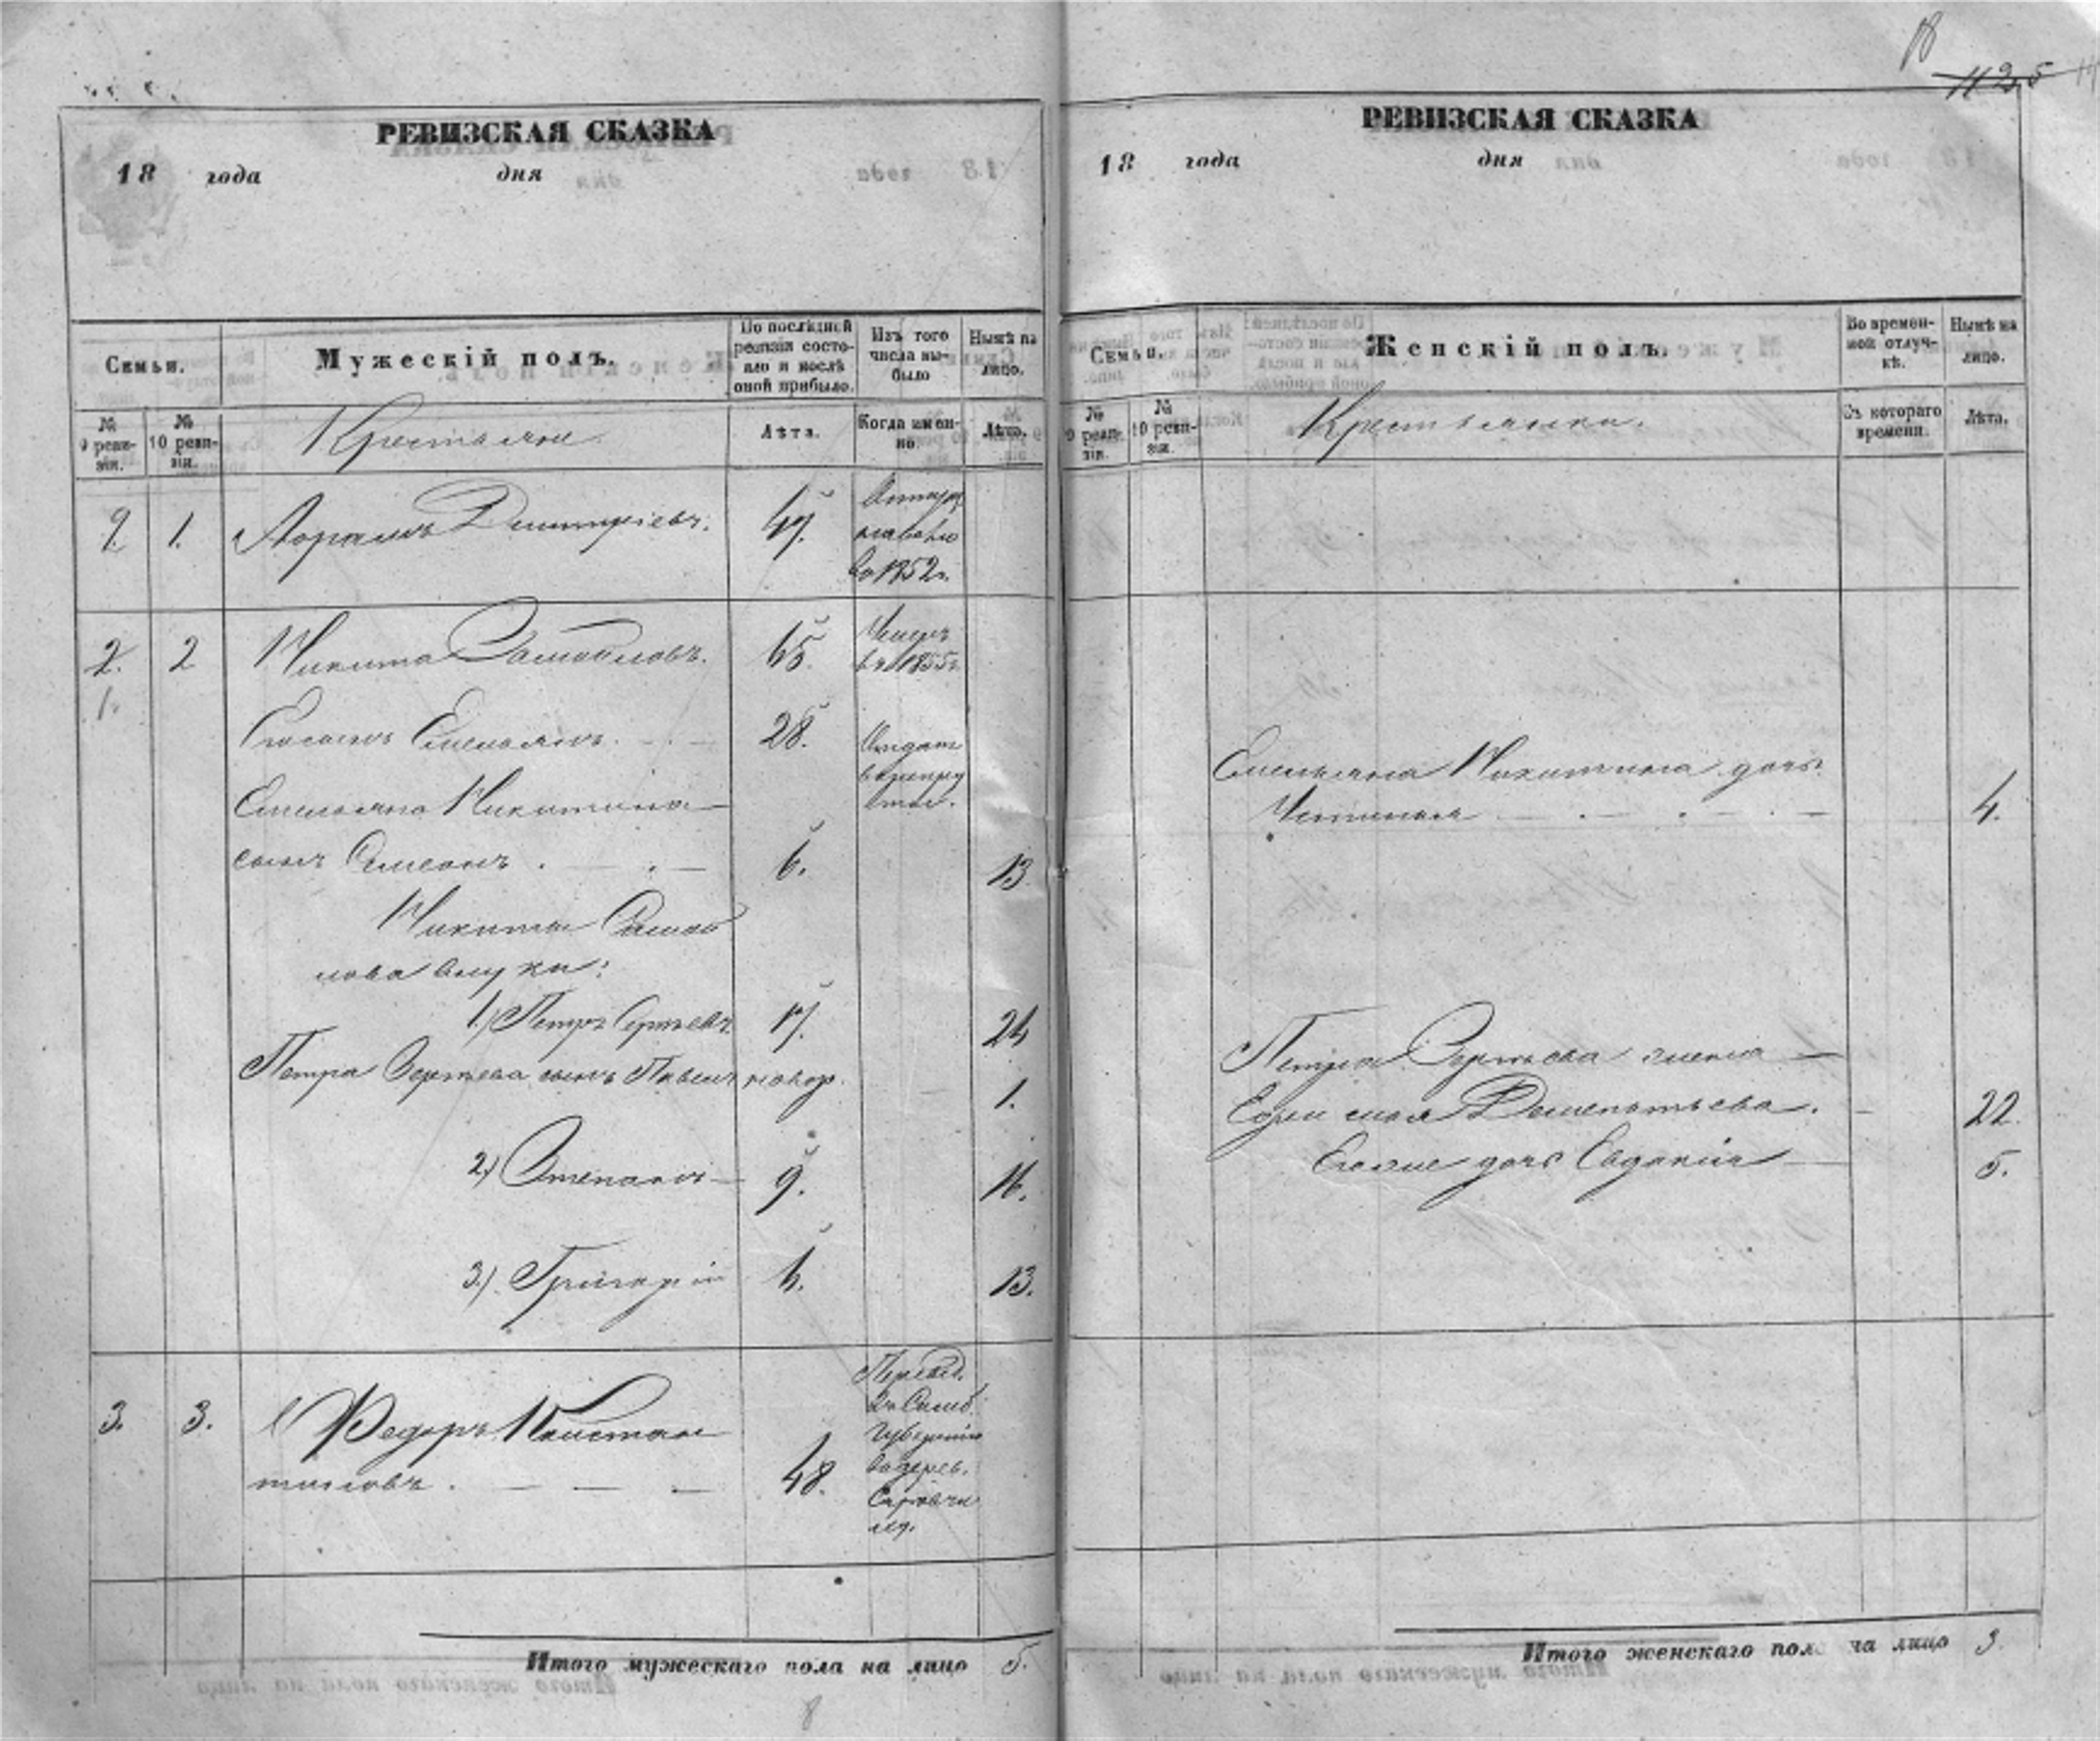 18
1125
РЕВИЗСКАЯ СКАЗКА
18 года дня
Семьи.
Мужескій полъ.
По послѣдней ревизіи состояло и послѣ оной прибыло.
Изъ того числа выбыло
Нынѣ на лицо.
№ 9 ревизіи.
№ 10 ревизіи.
Крестьяне
Лѣта.
Когда именно.
Лѣта.
1. Дмитріевъ. 47.
во 1852 г.
2. 2 Никита Самойловъ. 65. Умеръ
1. въ 1855 г.
28. Отданъ
в рекру
ты.
Емельяна Никитина
сынъ Симеонъ. 6. 13
Никиты Самой
лова внуки:
1.) Петръ Сергѣевъ 17. 24
Петра Сергѣева сынъ Павелъ новор. 1.
2.) Степанъ 9. 16.
3.) Григорій 6. 13.
3. 3. Федоръ Констан
тиновъ. 48.
Губернію
в дерев.
Итого мужескаго пола на лицо 5.
8
РЕВИЗСКАЯ СКАЗКА
18 года дня
Семьи.
Женскій полъ.
Во временной отлучкѣ.
Нынѣ на лицо.
№ 9 ревизіи.
№ 10 ревизіи.
Крестьянки.
Съ котораго времени.
Лѣта.
Емельяна Никитина дочь
Устинья 4.
Петра Сергѣева жена
Дементьева. 22.
дочь Евдокія 5.
Итого женскаго пола на лицо 3.